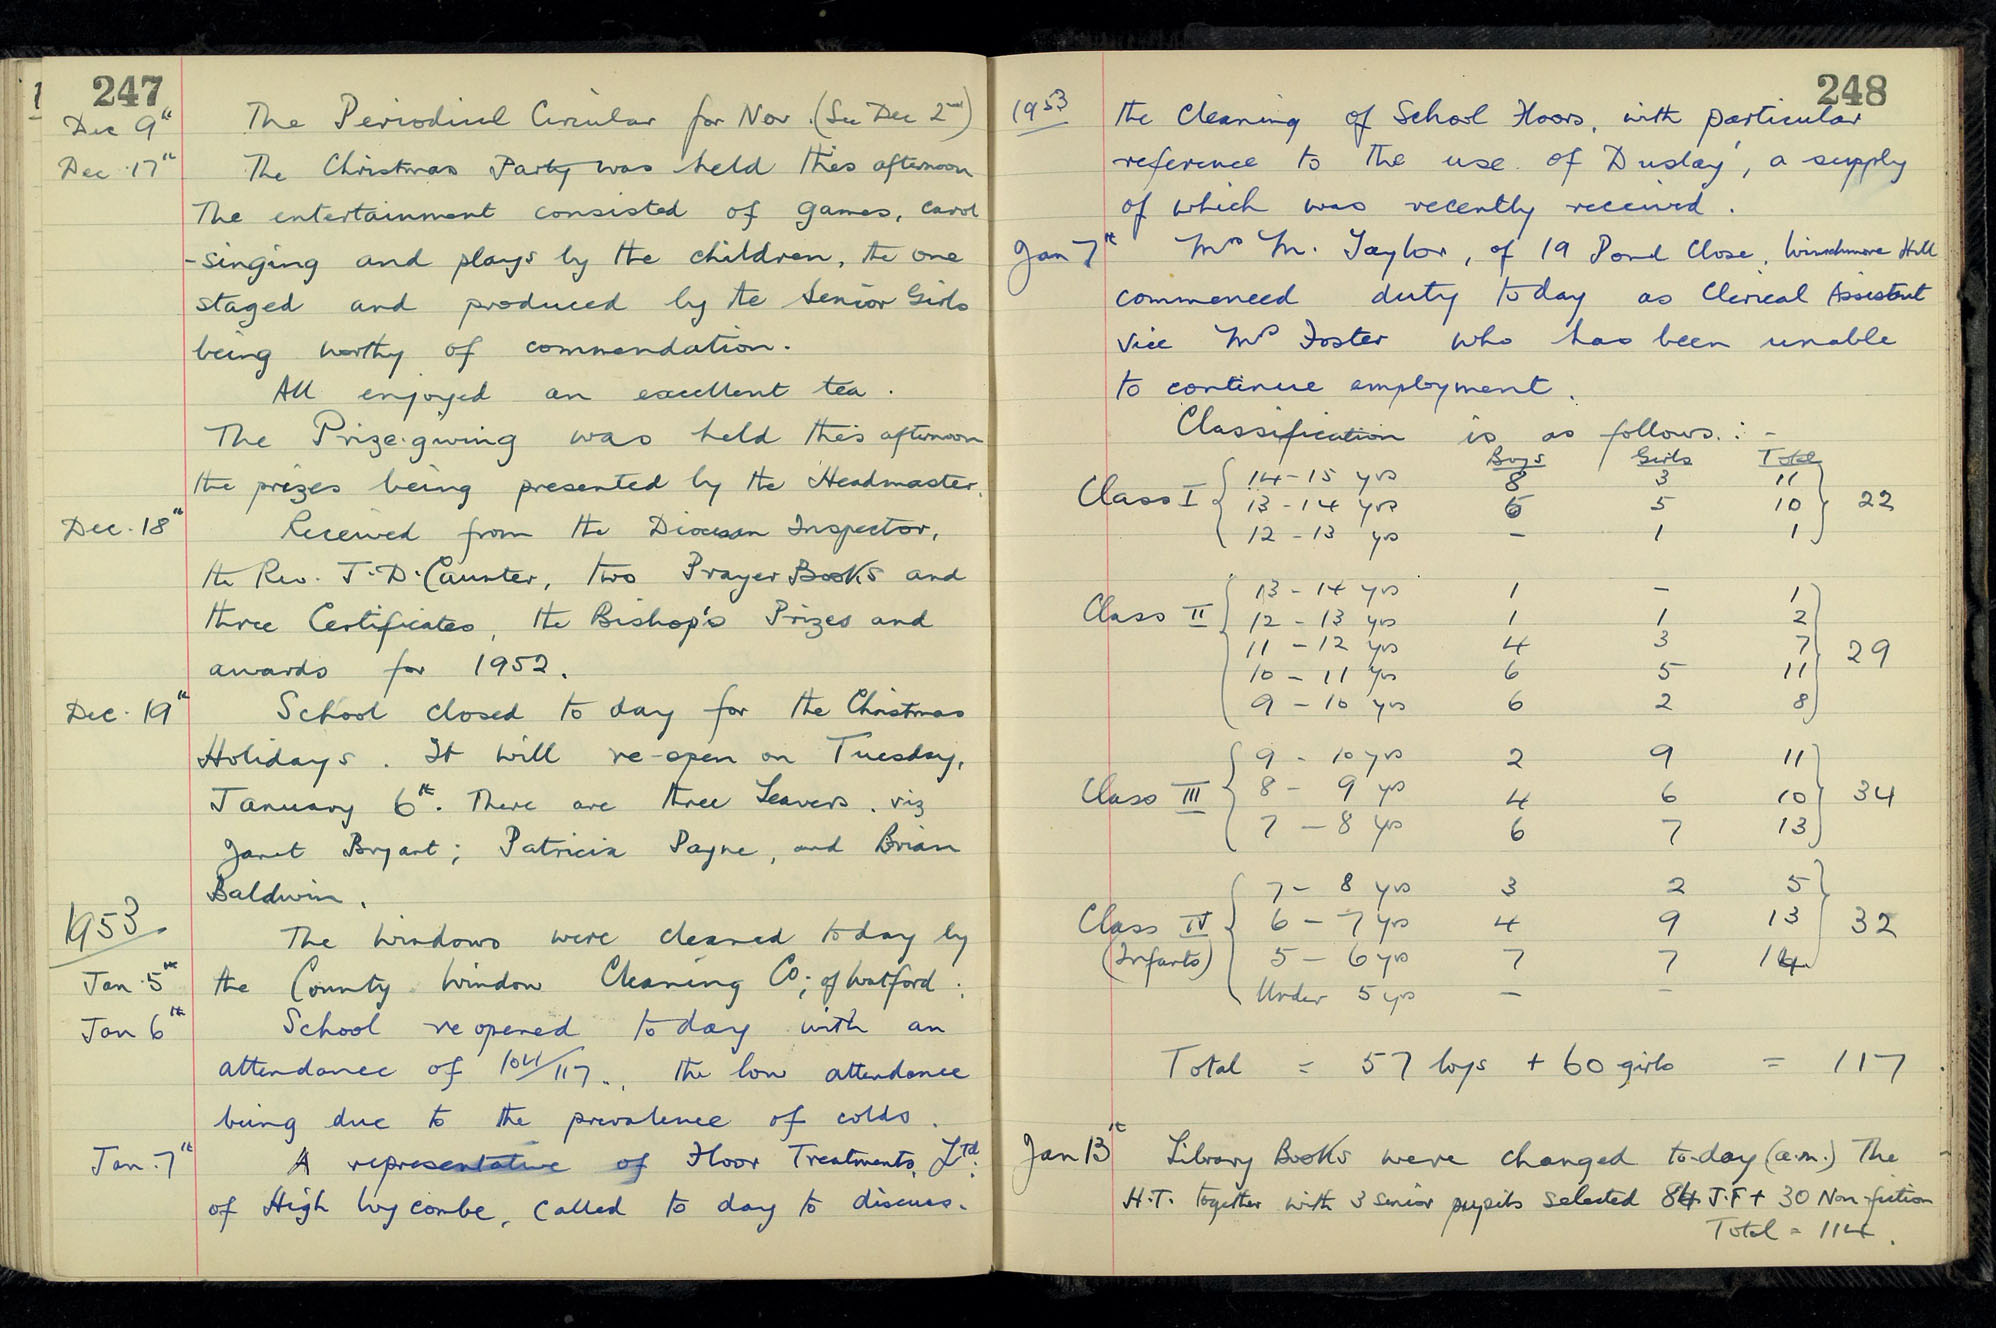 247
Dec 9th The Periodical Circular for Nov. (See Dec 2nd)
Dec. 17th The Christmas Party was held this afternoon
The entertainment consisted of games, carol
-singing and plays by the children, the one
staged and produced by the Senior Girls
being worthy of commendation.
All enjoyed an excellent tea.
The Prize-giving was held this afternoon
the prizes being presented by the Headmaster.
Dec. 18th Received from the Diocesan Inspector,
the Rev. J. D. Caunter, two Prayer Books and
three Certificates, the Bishop's Prizes and
awards for 1952.
Dec. 19th School closed to day for the Christmas
Holidays. It will re-open on Tuesday,
January 6th. There are three Leavers. viz
Janet Bryant; Patricia Payne, and Brian
Baldwin.
1953
The windows were cleaned today by
Jan. 5th the County Window Cleaning Co; of Watford.
Jan 6th School reopened to day with an
attendance of 104/117., the low attendance
being due to the prevalence of colds.
Jan. 7th A representative of Floor Treatments, Ltd.
of High Wycombe, called to day to discuss.
248
1953 the cleaning of School Floors, with particular
reference to the use of 'Dusday', a supply
of which was recently received.
Jan 7th Mrs M. Taylor, of 19 Pond Close, Winchmore Hill
commenced duty today as Clerical Assistant
vice Mrs Foster who has been unable
to continue employment.
Classification is as follows. : -
Boys Girls Total
14-15 yrs 8 3 11
Class I 13-14 yrs 5 5 10 22
12-13 yrs - 1 1
13-14 yrs 1 - 1
Class II 12-13 yrs 1 1 2
11-12 yrs 4 3 7 29
10-11 yrs 6 5 11
9-10 yrs 6 2 8
9 - 10 yrs 2 9 11
Class III 8 - 9 yrs 4 6 10 34
7 - 8 yrs 6 7 13
7 - 8 yrs 3 2 5
Class IV 6 - 7 yrs 4 9 13 32
(Infants) 5 - 6 yrs 7 7 14
Under 5 yrs - -
Total = 57 boys + 60 girls = 117
Jan 13th Library Books were changed to-day (a.m.) The
H.T. together with 3 senior pupils selected 84 J.F + 30 Non-fiction
Total = 114.